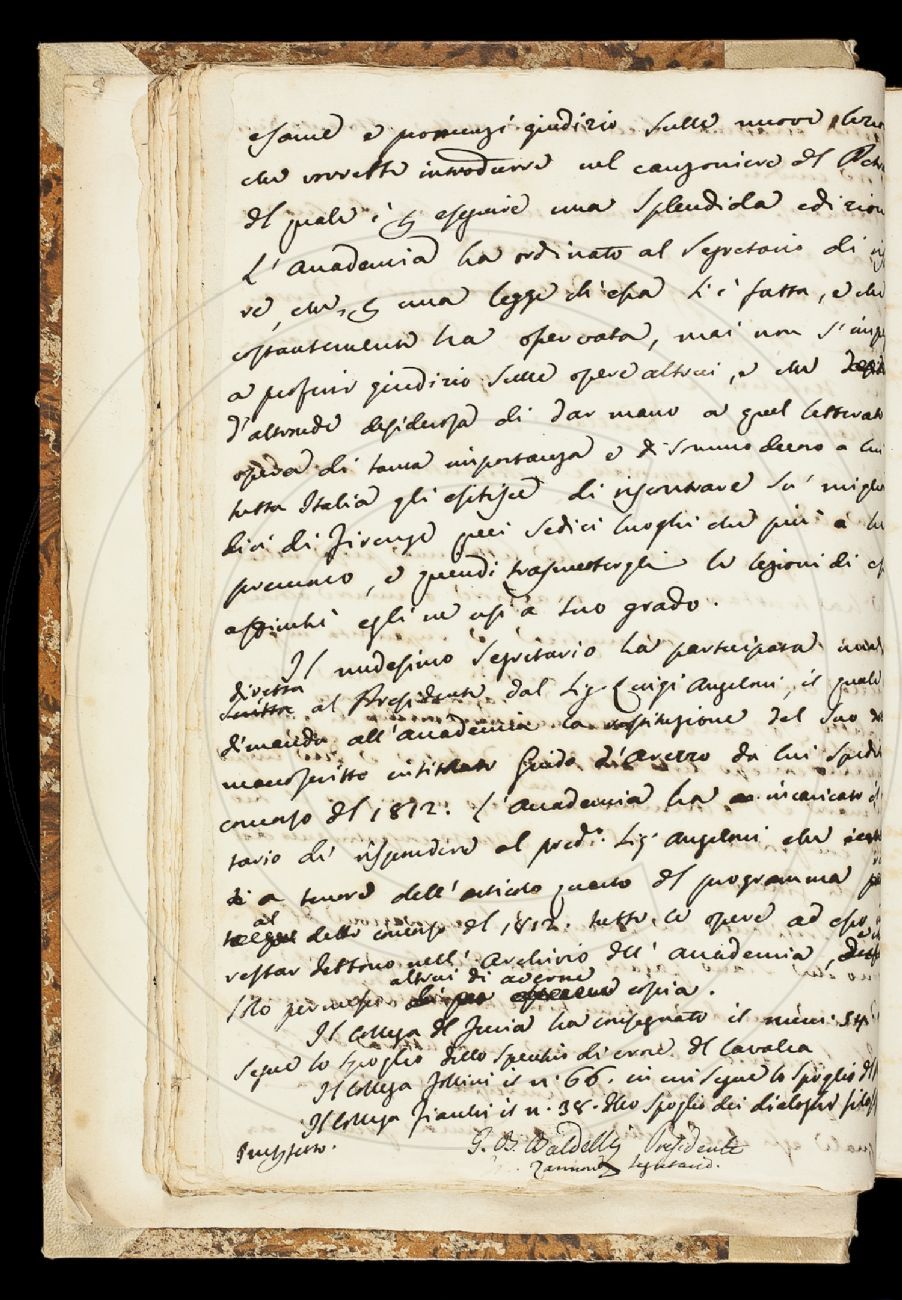 esame e pronunzi giudizio sulle nuove lezio
che vorrebbe introdurre nel canzoniere del Petra
del quale è per eseguire una splendida edizion
L'Accademia ha ordinato al Segretario di
re, che, per una legge ch'essa s'è fatta, e che
costantemente ha osservata, mai non s'imp
a proferir giudizio sulle opere altrui, e che
d'altronde desiderosa di dar mano a quel letterato
opera di tanta importanza e di sommo decoro a lui
tutta Italia gli esibisce di riscontrare su' miglio
dici di Firenze quei sedici luoghi che più a lu
premano, e quindi trasmettergli le lezioni di es
affinchè egli ne usi a suo grado.
Il medesimo Segretario ha partecipata
diretta
scritta al Presidente dal Sig. Luigi Angeloni, il quale
dimanda all'Accademia la restituzione del suo
manoscritto intitolato Guido d'Arezzo da lui spedi
concorso del 1812. L'Accademia ha incaricato il
tario di rispondere al pred. Sig. Angeloni che
a tenore dell'articolo quarto del programma
al
detto concorso del 1812. tutte le opere ad esso
restar debbono nell'Archivio dell'Accademia,
altrui di averne
solo permesso copia.
Il Collega del Furia ha consegnato il num. 34.
segue lo spoglio dello Specchio di croce del Cavalca
Il Collega Follini il n. 66. in cui segue lo spoglio del
Il Collega Fiacchi il n. 38. dello spoglio dei dialoghi
G. B. Baldelli Presidente
Zannoni Segretario.